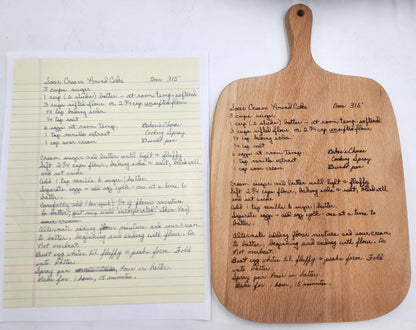 Sour Cream Pound Cake Oven 315°
3 cups sugar
1 cup (2 sticks) butter - at room temp. softened
3 cups sifted flour or 2 3/4 cup unsifted flour
1/4 tsp baking soda
1/4 tsp salt
6 eggs at room temp. Baker's Choice
1 tsp. vanilla extract Cooking Spray
1 cup sour cream
Cream sugar and butter until light & fluffy
Sift 2 3/4 cups flour, baking soda & salt,
and set aside
Add 1 tsp vanilla to sugar/butter.
Separate eggs - add egg yolk - one at a time to
butter.
sour cream.
Alternate adding flour mixture and sour cream
to butter, beginning and ending with flour. Do
Not overbeat.
Beat egg white til fluffy & peaks form Fold
into batter
Spray pan Pour in batter.
Bake for 1 hour, 15 minutes.
Sour Cream Pound Cake Oven 315°
3 cups sugar
1 cup (2 sticks) butter - at room temp softened
3 cups sifted flour or 2 3/4 cup unsifted flour
1/4 tsp baking soda
1/4 tsp salt
6 eggs at room temp. Baker's Choice
1 tsp. vanilla extract Cooking Spray
1 cup sour cream
Cream sugar and butter until light & fluffy
Sift 2 3/4 cups flour, baking soda & salt,
and set aside
Add 1 tsp vanilla to sugar/butter.
Separate eggs - add egg yolk - one at a time to
butter.
Alternate adding flour mixture and sour cream
to butter, beginning and ending with flour. Do
Not overbeat.
Beat egg white til fluffy & peaks form Fold
into batter.
Spray pan Pour in batter.
Bake for 1 hour, 15 minutes.